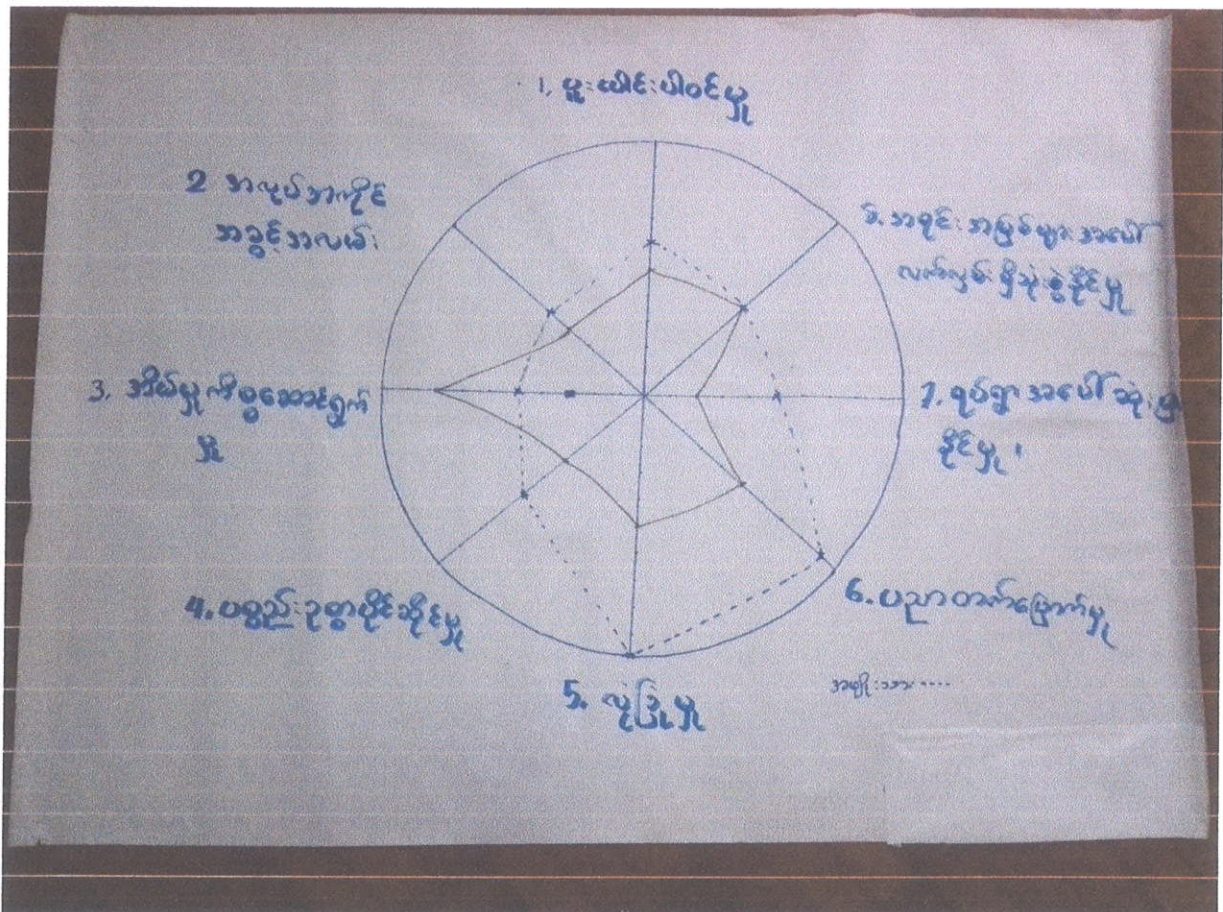 1, ပူးပေါင်းပါဝင်မှု
2 အလုပ်အကိုင်
အခွင့်အလမ်း
3, အိမ်မှုကိစ္စဆောင်ရွက်
မှု
4. ပစ္စည်းဥစ္စာပိုင်ဆိုင်မှု
5. လုံခြုံမှု
6. ပညာတတ်မြောက်မှု
7. ရပ်ရွာအပေါ်ဆုံးဖြ
နိုင်မှု ၊
8. အရင်းအမြစ်များအပေါ်
လက်လှမ်းမှီသုံးစွဲနိုင်မှု
အမျိုးသား ----